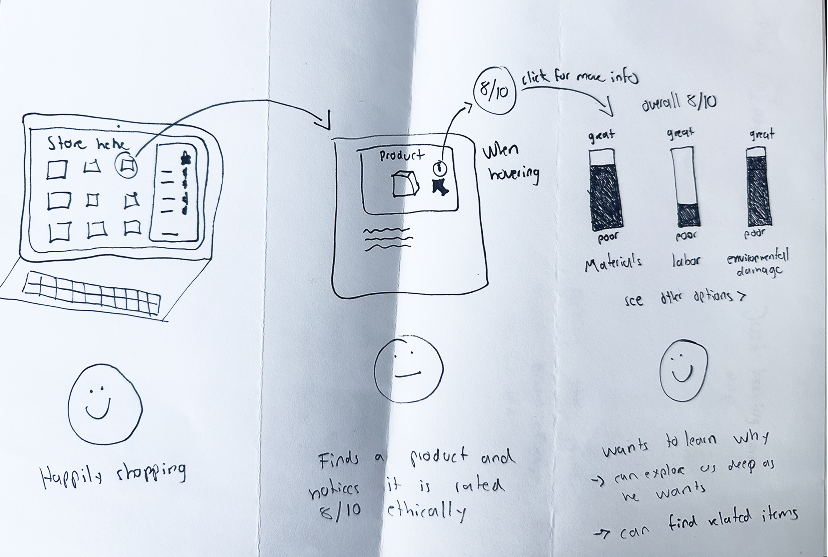 Store here
Product
When
hovering
8/10
click for more info
overall 8/10
great
great
great
poor
poor
poor
Materials
labor
environmental
damage
see other options >
Happily shopping
Finds a product and
notices it is rated
8/10 ethically
wants to learn why
→ can explore as deep as
he wants
→ can find related items